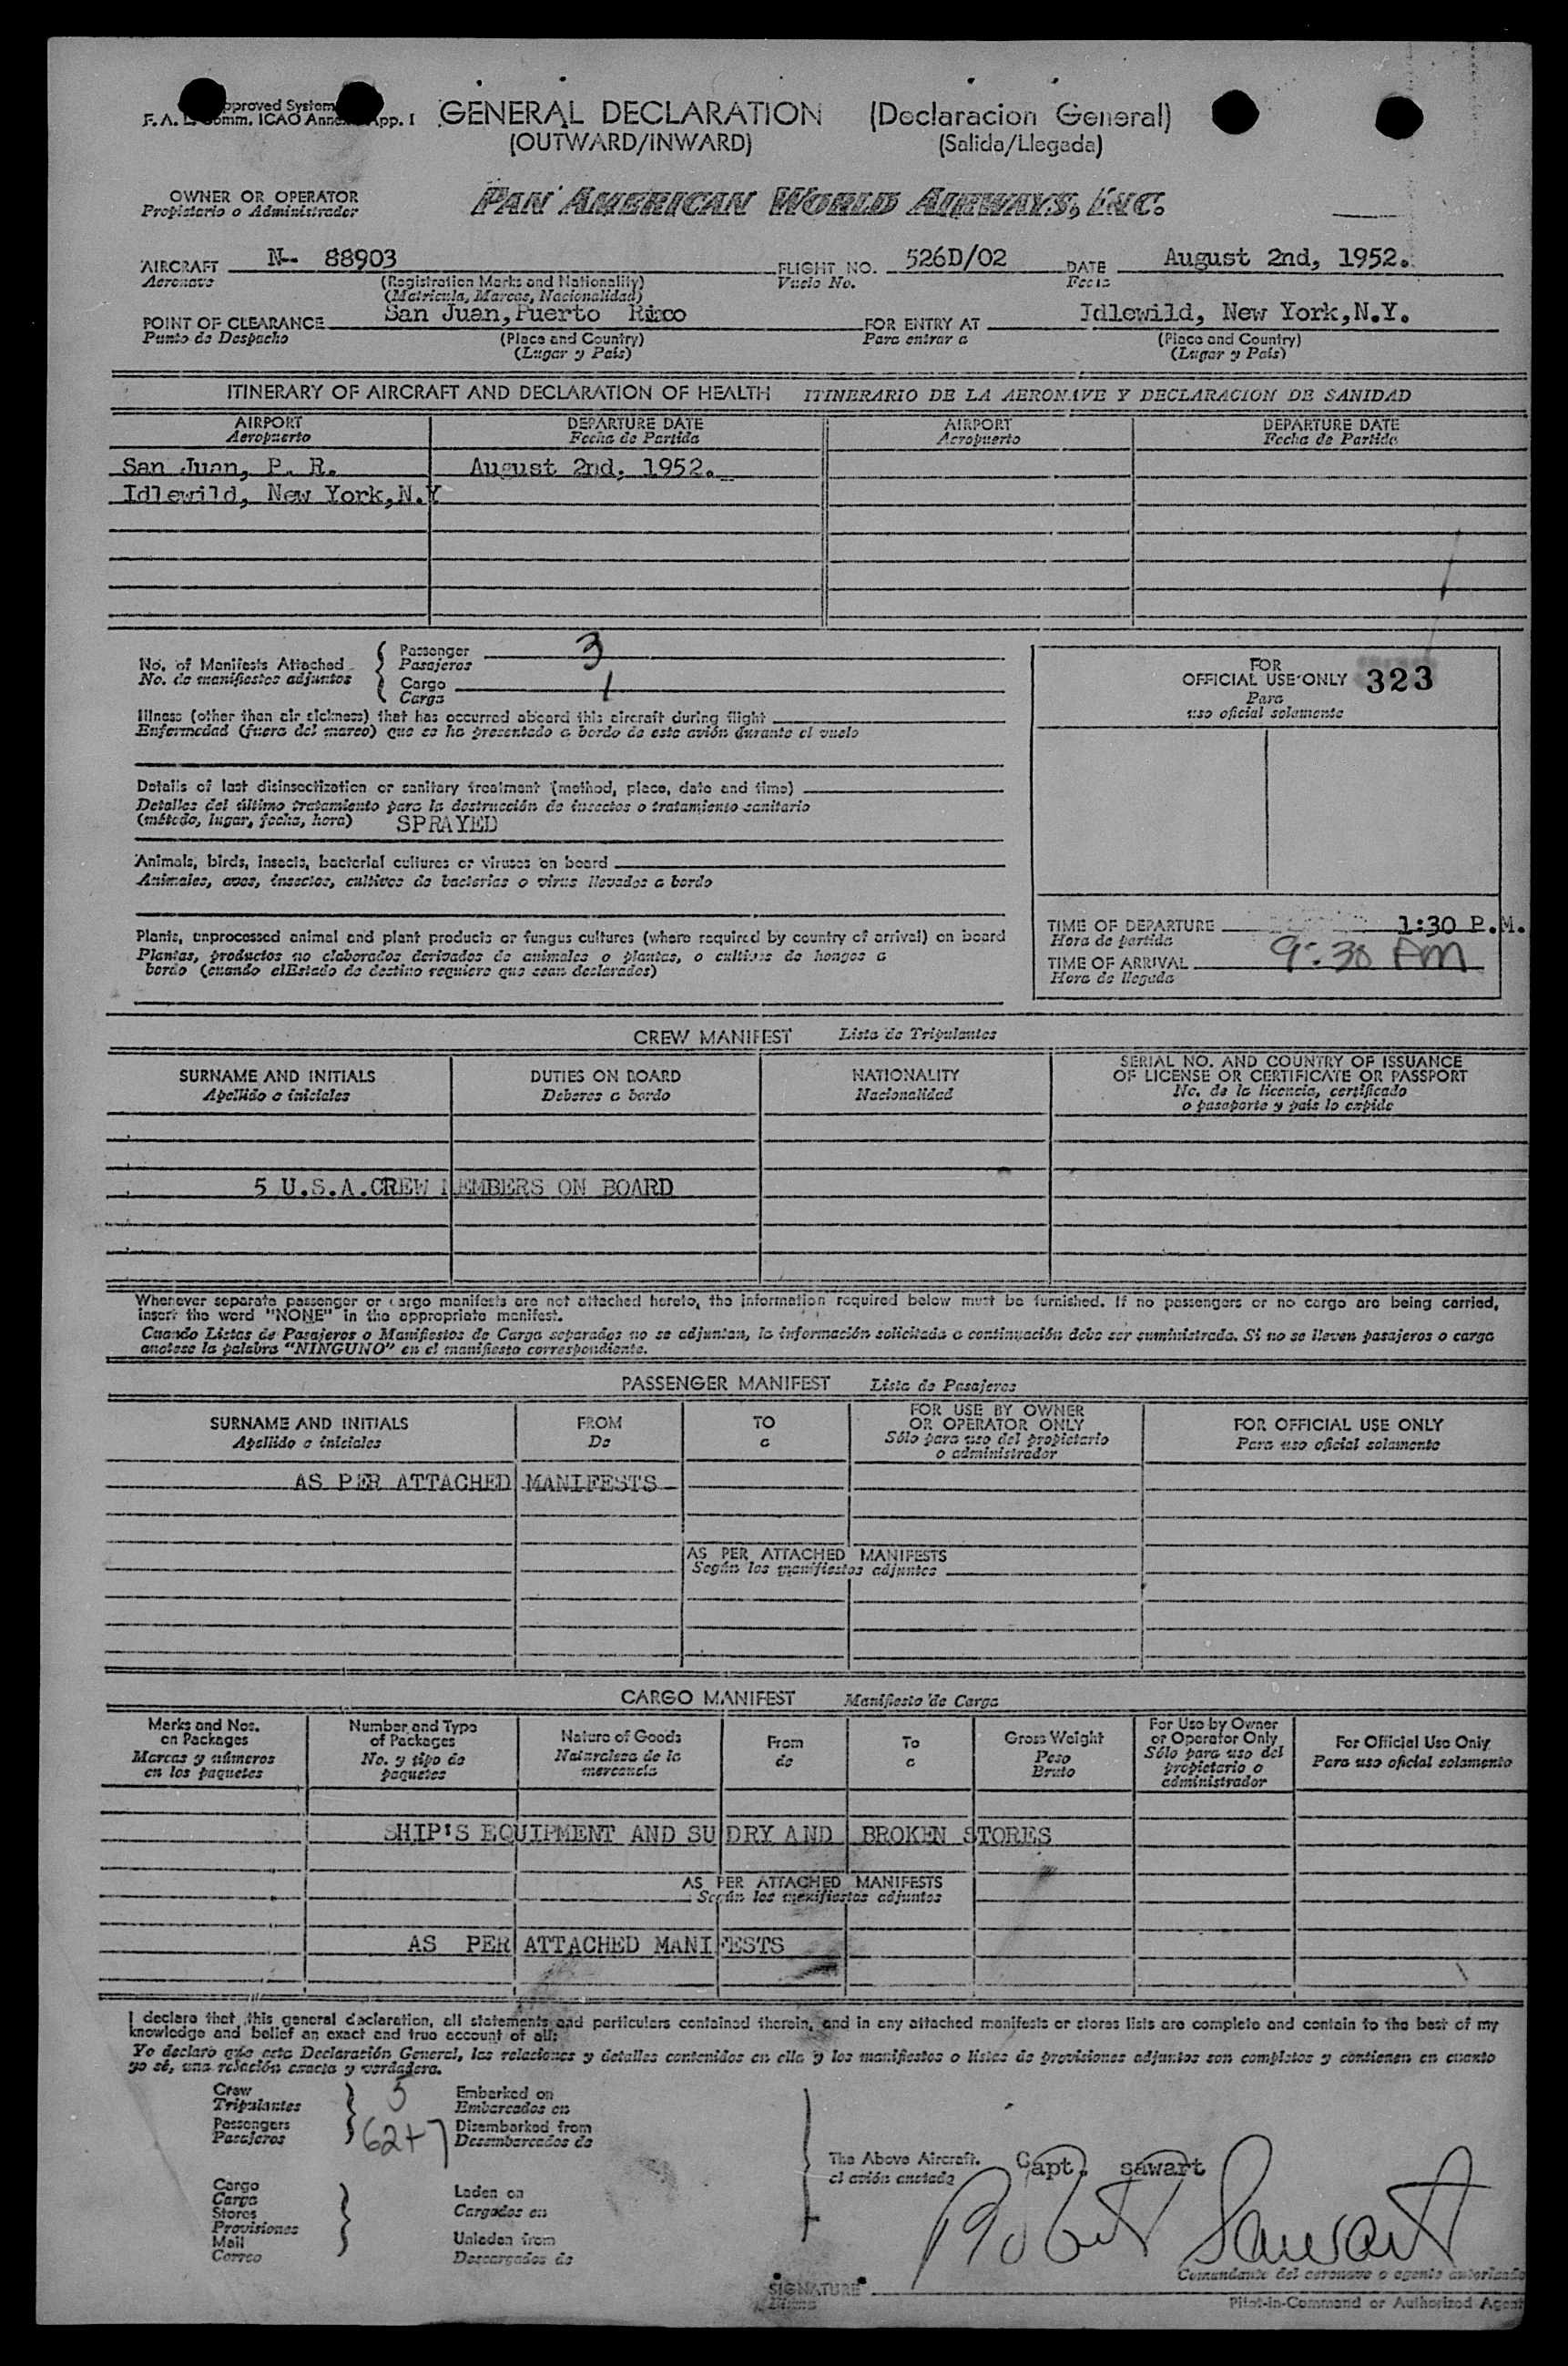 Approved System
F. A. L. Comm. ICAO Annex App. I
GENERAL DECLARATION (Declaracion General)
(OUTWARD/INWARD) (Salida/Llegada)
OWNER OR OPERATOR
Propietario o Administrador
PAN AMERICAN WORLD AIRWAYS, INC.
AIRCRAFT N-- 88903 FLIGHT NO. 526D/02 DATE August 2nd, 1952.
Aeronave (Registration Marks and Nationality) Vuelo No. Fecha
(Matricula, Marcas, Nacionalidad)
POINT OF CLEARANCE San Juan, Puerto Rico FOR ENTRY AT Idlewild, New York, N.Y.
Punto de Despacho (Place and Country) Para entrar a (Place and Country)
(Lugar y Pais) (Lugar y Pais)
ITINERARY OF AIRCRAFT AND DECLARATION OF HEALTH ITINERARIO DE LA AERONAVE Y DECLARACION DE SANIDAD
AIRPORT DEPARTURE DATE AIRPORT DEPARTURE DATE
Aeropuerto Fecha de Partida Aeropuerto Fecha de Partida
San Juan, P. R. August 2nd, 1952.
Idlewild, New York, N.Y
No. of Manifests Attached
No. de manifiestos adjuntos
Passenger 3
Pasajeros
Cargo 1
Carga
Illness (other than air sickness) that has occurred aboard this aircraft during flight
Enfermedad (fuera del mareo) que se ha presentado a bordo de este avión durante el vuelo
Details of last disinsectization or sanitary treatment (method, place, date and time)
Detalles del último tratamiento para la destrucción de insectos o tratamiento sanitario
(método, lugar, fecha, hora) SPRAYED
Animals, birds, insects, bacterial cultures or viruses on board
Animales, aves, insectos, cultivos de bacterias o virus llevados a bordo
Plants, unprocessed animal and plant products or fungus cultures (where required by country of arrival) on board
Plantas, productos no elaborados derivados de animales o plantas, o cultivos de hongos a
bordo (cuando elEstado de destino requiere que sean declarados)
FOR
OFFICIAL USE ONLY 323
Para
uso oficial solamente
TIME OF DEPARTURE 1:30 P.M.
Hora de partida
TIME OF ARRIVAL 9:30 PM
Hora de llegada
CREW MANIFEST Lista de Tripulantes
SURNAME AND INITIALS DUTIES ON BOARD NATIONALITY SERIAL NO. AND COUNTRY OF ISSUANCE
OF LICENSE OR CERTIFICATE OR PASSPORT
Apellido e iniciales Deberes a bordo Nacionalidad No. de la licencia, certificado
o pasaporte y pais lo expide
5 U.S.A.CREW MEMBERS ON BOARD
Whenever separate passenger or cargo manifests are not attached hereto, the information required below must be furnished. If no passengers or no cargo are being carried,
insert the word "NONE" in the appropriate manifest.
Cuando Listas de Pasajeros o Manifiestos de Carga separados no se adjuntan, la información solicitada a continuación debe ser suministrada. Si no se lleven pasajeros o carga
anotese la palabra "NINGUNO" en el manifiesto correspondiente.
PASSENGER MANIFEST Lista de Pasajeros
SURNAME AND INITIALS FROM TO FOR USE BY OWNER
OR OPERATOR ONLY FOR OFFICIAL USE ONLY
Apellido e iniciales De a Sólo para uso del propietario
o administrador Para uso oficial solamente
AS PER ATTACHED MANIFESTS
AS PER ATTACHED MANIFESTS
Según los manifiestos adjuntos
CARGO MANIFEST Manifiesto de Carga
Marks and Nos.
on Packages
Marcas y números
en los paquetes
Number and Type
of Packages
No. y tipo de
paquetes
Nature of Goods
Naturaleza de la
mercancia
From
de
To
a
Gross Weight
Peso
Bruto
For Use by Owner
or Operator Only
Sólo para uso del
propietario o
administrador
For Official Use Only
Para uso oficial solamente
SHIP'S EQUIPMENT AND SU DRY AND BROKEN STORES
AS PER ATTACHED MANIFESTS
Según los manifiestos adjuntos
AS PER ATTACHED MANIFESTS
I declare that this general declaration, all statements and particulars contained therein, and in any attached manifests or stores lists are complete and contain to the best of my
knowledge and belief an exact and true account of all:
Yo declaro que esta Declaración General, las relaciones y detalles contenidos en ella y los manifiestos o listas de provisiones adjuntos son completos y contienen en cuanto
yo sé, una relación exacta y verdadera.
Crew 5
Tripulantes
Passengers 62+7
Pasajeros
Embarked on
Embarcados en
Disembarked from
Desembarcados de
Cargo
Carga
Stores
Provisiones
Mail
Correo
Laden on
Cargados en
Unladen from
Descargados de
The Above Aircraft.
el avión anotado
Capt. sawart
Robert Sawart
SIGNATURE
Firma
Comandante del aeronave o agente autorizado
Pilot-in-Command or Authorized Agent